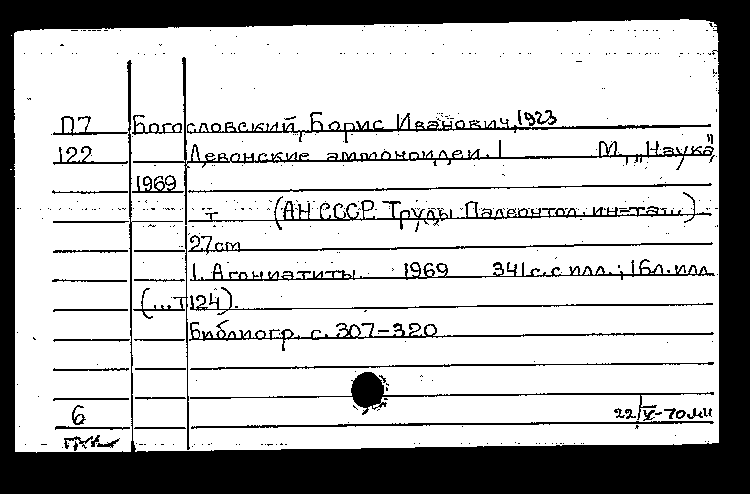 П7 Богословский, Борис Иванович, 1923
122 Девонские аммоноидеи. 1 М., „Наука"
1969
т (АН СССР. Труды Палеонтол. ин-та...)
27cm
1. Агониатиты. 1969 341 с. с илл.; 16л. илл
(...т124).
Библиогр. с. 307-320
6 22/V-70